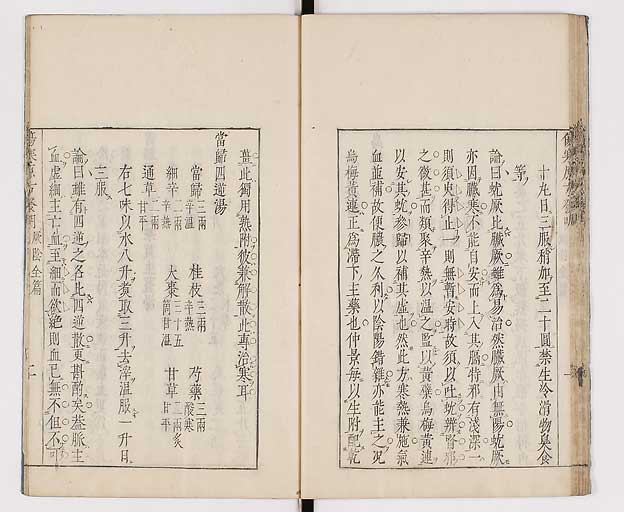 十九日三服稍加至二十圓禁生冷滑物臭食
等
論曰蚘厥比臟厥雖爲易治然臟厥由無陽蚘厥
亦因臟寒不能自安而上入其膈特邪有淺深一
則須臾得止一則無暫安時故須以吐蚘辨腎邪
之微甚而類聚辛熱以溫之監以黃蘗烏梅黃連
以安其蚘參歸以補其虛也然此方寒熱兼施氣
血並補故便膿之久利以陰陽錯雜亦能主之况
烏梅黃連正爲滯下主藥也仲景每以生附配乾
薑此獨用熟附彼兼解散此專治寒耳
當歸四逆湯
當歸三兩辛溫 桂枝三兩辛熱 芍藥三兩酸寒
細辛二兩辛熱 大棗三十五箇甘溫 甘草二兩炙甘平
通草二兩甘平
右七味以水八升煑取三升去滓溫服一升日
三服
論曰雖有四逆之名此四逆散更斟酌矣葢脈主
血虛細主亡血至細而欲絶則血已無不但不可
厥陰全篇